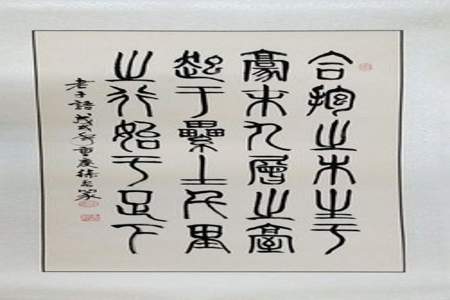 合抱之木生于
毫末九層之臺
起于纍土千里
之行始于足下
老子語戊戌年重慶徐篆